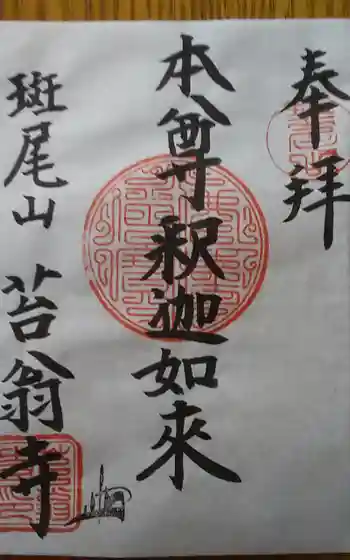 奉拝
本尊釈迦如來
斑尾山 苔翁寺